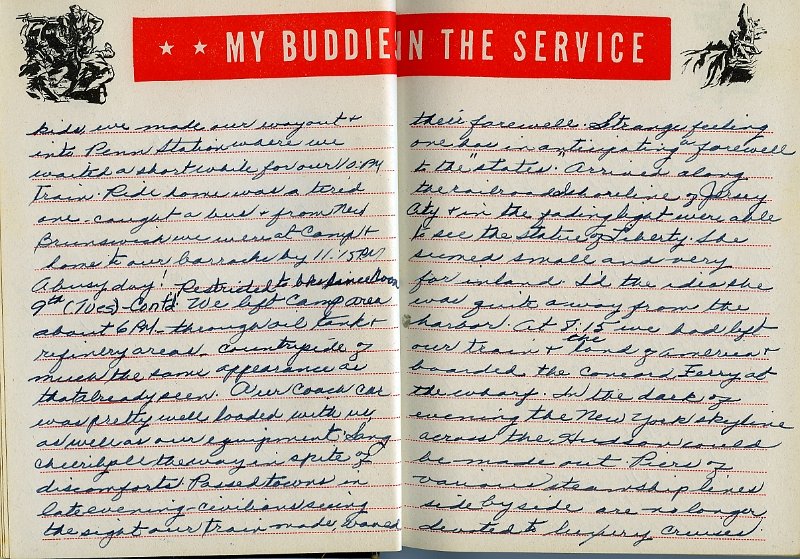 ★ ★ MY BUDDIE
IN THE SERVICE
kids, we made our way out +
into Penn Station where we
waited a short while for our 10 PM
train. Ride home was a tired
one - caught a bus + from New
Brunswick we were at Camp +
home to our barracks by 11:15 PM
A busy day! Restricted to bks since noon
9th (Tues) - Cont'd. We left Camp area
about 6 PM - through oil tank +
refinery areas - countryside of
much the same appearance as
that already seen. Our coach car
was pretty well loaded with us,
as well as our equipment. Sang
cheerily all the way in spite of
discomforts. Passed towns in
late evening - civilians seeing
the sight our train made, waved
their farewell. Strange feeling
one has in anticipating a farewell
to the "states". Arriven along
the railroad shoreline of Jersey
City + in the fading light were able
to see the Statue of Liberty. She
seemed small and very
far inland. I'd the idea she
was quite away from the
harbor. At 8:15 we had left
our train + the land of America +
boarded the Ferry at
the wharf. In the dark of
evening the New York skyline
across the Hudson could
be made out. Piers of
various steamship lines
side by side are no longer
devoted to luxury cruises